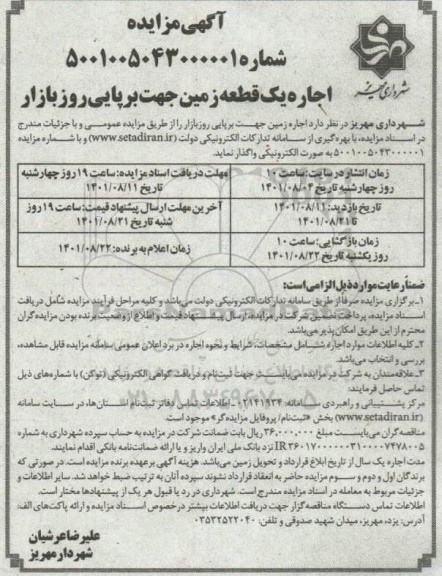 آگهی مزایده
شماره ۵۰۰۱۰۰۵۰۴۳۰۰۰۰۰۱
اجاره یک قطعه زمین جهت برپایی روز بازار
شهرداری مهریز
شهرداری مهریز در نظر دارد اجاره زمین جهت برپایی روزبازار را از طریق مزایده عمومی و با جزئیات مندرج
در اسناد مزایده، با بهره‌گیری از سامانه تدارکات الکترونیکی دولت (www.setadiran.ir) و با شماره مزایده
۵۰۰۱۰۰۵۰۴۳۰۰۰۰۰۱ به صورت الکترونیکی واگذار نماید.
زمان انتشار در سایت: ساعت ۱۰
روز چهارشنبه تاریخ ۱۴۰۱/۰۸/۰۴
مهلت دریافت اسناد مزایده: ساعت ۱۹ روز چهارشنبه
تاریخ ۱۴۰۱/۰۸/۱۱
تاریخ بازدید: ۱۴۰۱/۰۸/۱۱
تا ۱۴۰۱/۰۸/۲۱
آخرین مهلت ارسال پیشنهاد قیمت: ساعت ۱۹ روز
شنبه تاریخ ۱۴۰۱/۰۸/۲۱
زمان بازگشایی: ساعت ۱۰
روز یکشنبه تاریخ ۱۴۰۱/۰۸/۲۲
زمان اعلام به برنده: ۱۴۰۱/۰۸/۲۲
ضمناً رعایت موارد ذیل الزامی است:
۱ـ برگزاری مزایده صرفاً از طریق سامانه تدارکات الکترونیکی دولت می‌باشد و کلیه مراحل فرآیند مزایده شامل دریافت
اسناد مزایده، پرداخت تضمین شرکت در مزایده، ارسال پیشنهاد قیمت و اطلاع از وضعیت برنده بودن مزایده‌گران
محترم از این طریق امکان‌پذیر می‌باشد.
۲ـ کلیه اطلاعات موارد اجاره شامل مشخصات، شرایط و نحوه اجاره در برد اعلان عمومی سامانه مزایده قابل مشاهده،
بررسی و انتخاب می‌باشد.
۳ـ علاقه‌مندان به شرکت در مزایده می‌بایست جهت ثبت‌نام و دریافت گواهی الکترونیکی (توکن) با شماره‌های ذیل
تماس حاصل فرمایند:
مرکز پشتیبانی و راهبردی سامانه: ۰۲۱۴۱۹۳۴ـ اطلاعات تماس دفاتر ثبت‌نام استان‌ها، در سایت سامانه
(www.setadiran.ir) بخش «ثبت‌نام/پروفایل مزایده‌گر» موجود است.
مناقصه‌گران می‌بایست مبلغ ۳۶,۰۰۰,۰۰۰ ریال بابت ضمانت شرکت در مزایده به حساب سپرده شهرداری به شماره
نزد بانک ملی ایران واریز و یا ارائه ضمانت‌نامه بانکی اقدام نمایند.
مدت اجاره یک سال از تاریخ ابلاغ قرارداد و تحویل زمین می‌باشد. هزینه آگهی برعهده برنده مزایده است. در صورتی که
برندگان اول و دوم و سوم مزایده حاضر به انعقاد قرارداد نشوند سپرده آنان به ترتیب ضبط خواهد شد. سایر اطلاعات و
جزئیات مربوط به معامله در اسناد مزایده مندرج است. شهرداری در رد یا قبول هر یک از پیشنهادها مختار است.
اطلاعات تماس دستگاه مناقصه‌گزار جهت دریافت اطلاعات بیشتر درخصوص اسناد مزایده و ارائه پاکت‌های الف:
آدرس: یزد، مهریز، میدان شهید صدوقی و تلفن: ۰۳۵۳۲۵۲۲۰۴۰
علیرضا عرشیان
شهردار مهریز